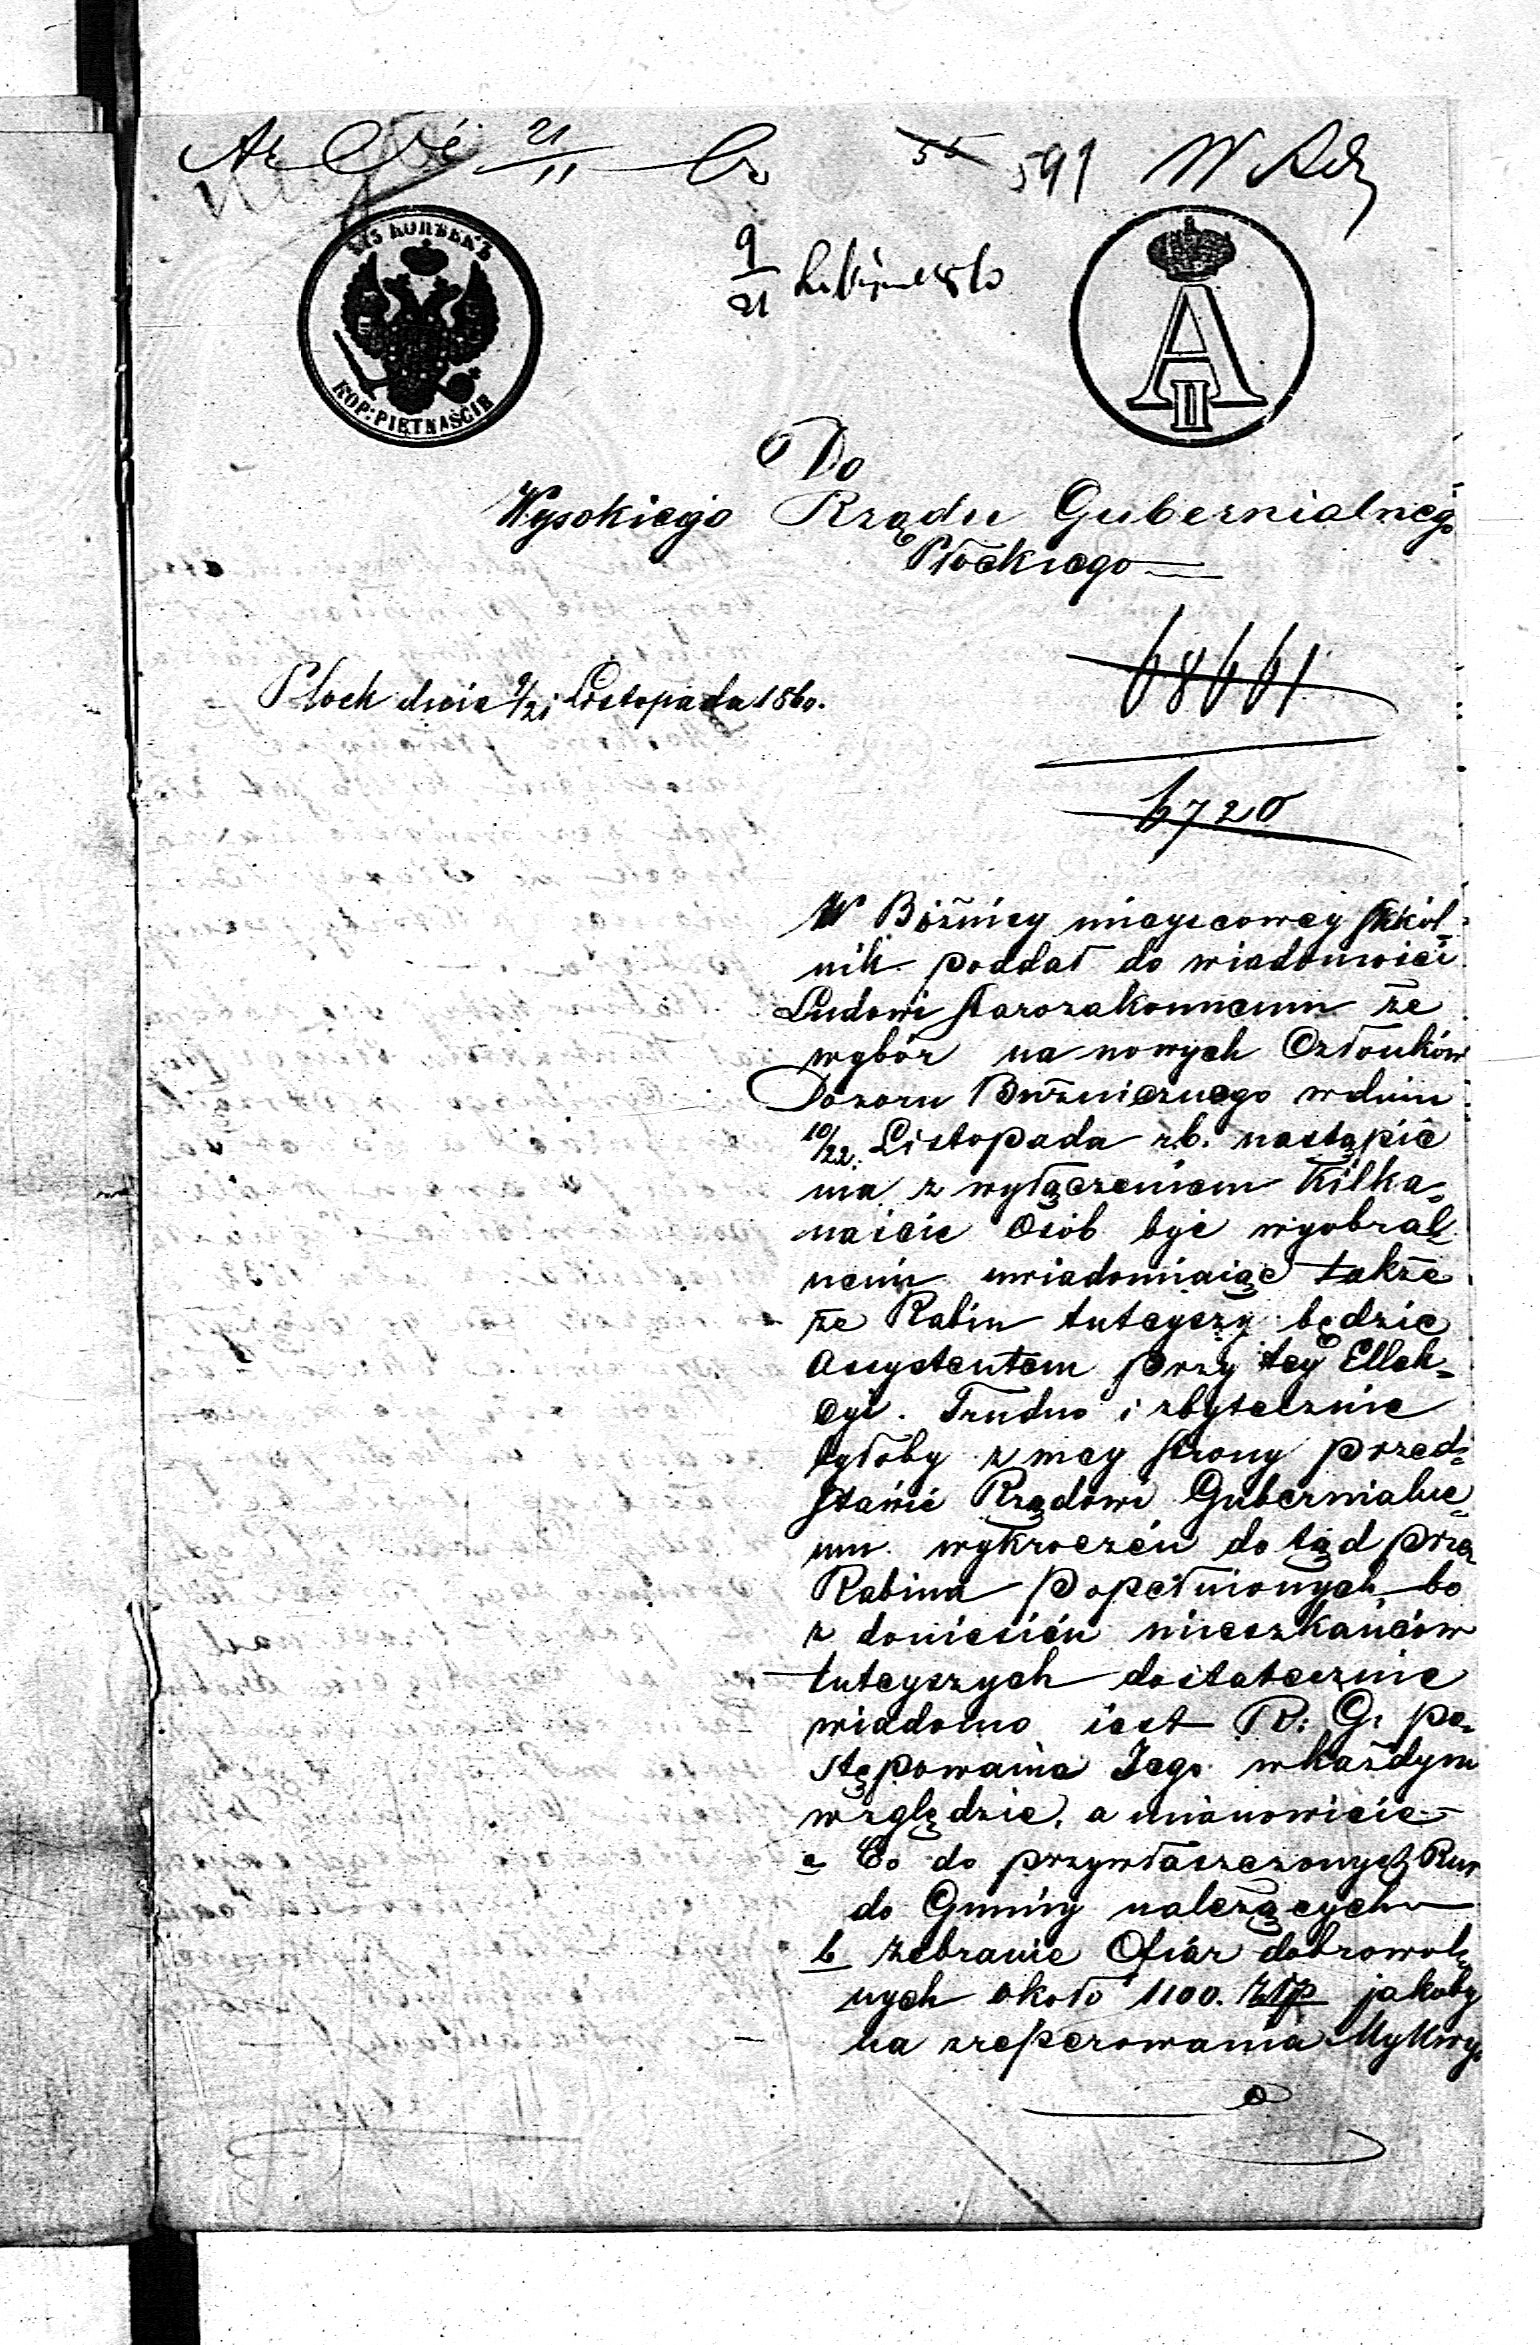 21
11
55 591
15 КОПѢЕКЪ
KOP: PIĘTNAŚCIE
9
21
A
II
Do
Wysokiego Rządu Gubernialnego
Płockiego
68661
Płock dnia 9/21 Listopada 1860.
6720
W Bóżnicy mieyscowey Szkol-
nik poddał do wiadomości
Ludowi starozakonnemu że
wybór na nowych Członków
Dozoru Bóżnicznego w dniu
10/22. Listopada rb. nastąpić
ma z wyłączeniem Kilka-
naście Osób być wyobral-
nemi uwiadomiaiąc także
że Rabin tuteyszy będzie
assystentem przy tey Ellek-
cyi. Trudno i zbytecznie
byłoby z mey strony przed-
stawić Rządowi Gubernialne-
mu wykroczeń do tąd przez
Rabina popełnionych bo
z doniesień mieszkańców
tuteyszych dostatecznie
wiadomo iest R: G: po-
stępowania Jego w każdym
względzie, a mianowicie
a Co do przywłaszczonych Rur
do Gminy należących
b zebranie Ofiar dobrowol-
nych około 1100. złp jakoby
na zreperowania Mykwy.